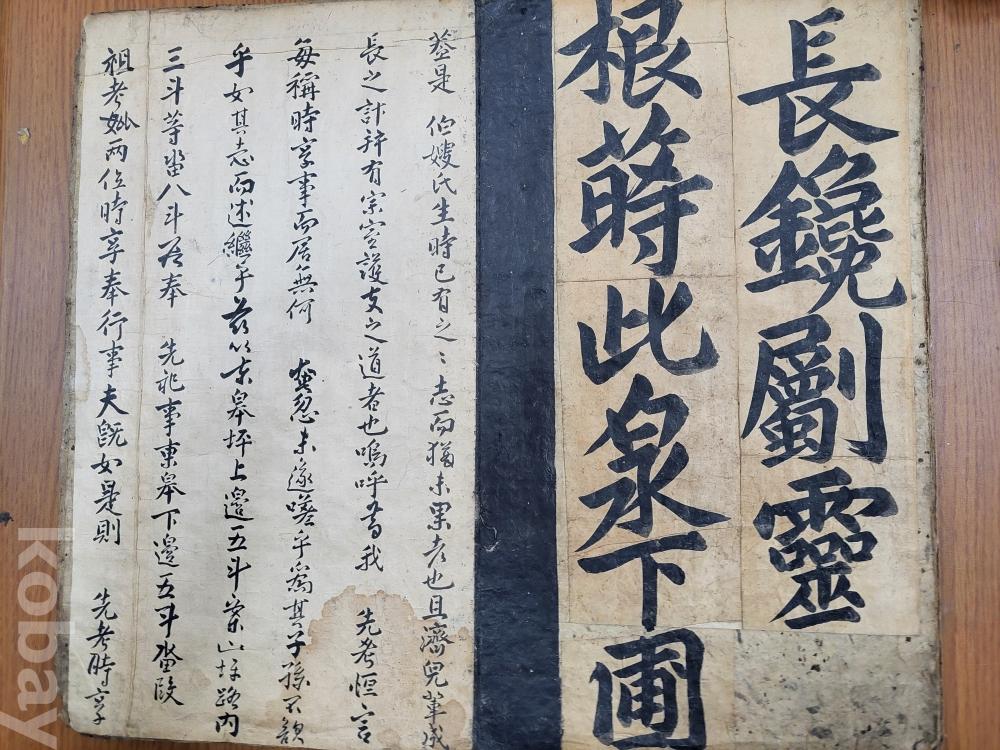 長鑱劚靈
根蒔此泉下圃
盖是 伯嫂氏生時已有之〻志而猶未果者也且濟兒輩成
長之計並有宗宣護支之道者也嗚呼昔我 先考恒言
每稱時享事而居無何 奄忽未遂嗟乎爲其子孫不欲
乎如其志而述繼乎玆以東皐坪上邊五斗案山坪路內
三斗等畓八斗爲奉 先祀事東皐下邊五斗畓段
祖考妣两位時享奉行事夫旣如是則 先考時享
kobay